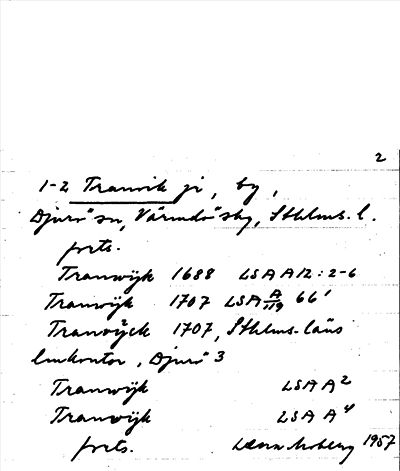 2
1-2 Tranvik ji, by,
Djurö sn, Värmdö sky, Sthlms. l.
forts.
Tranwijk 1688 LSA A12:2-6
Tranwijk 1707 LSA A/119 66'
Tranvijck 1707, Sthlms läns
lmkontor, Djurö 3
Tranwijk LSA A2
Tranwijk LSA A4
forts. Moberg 1957